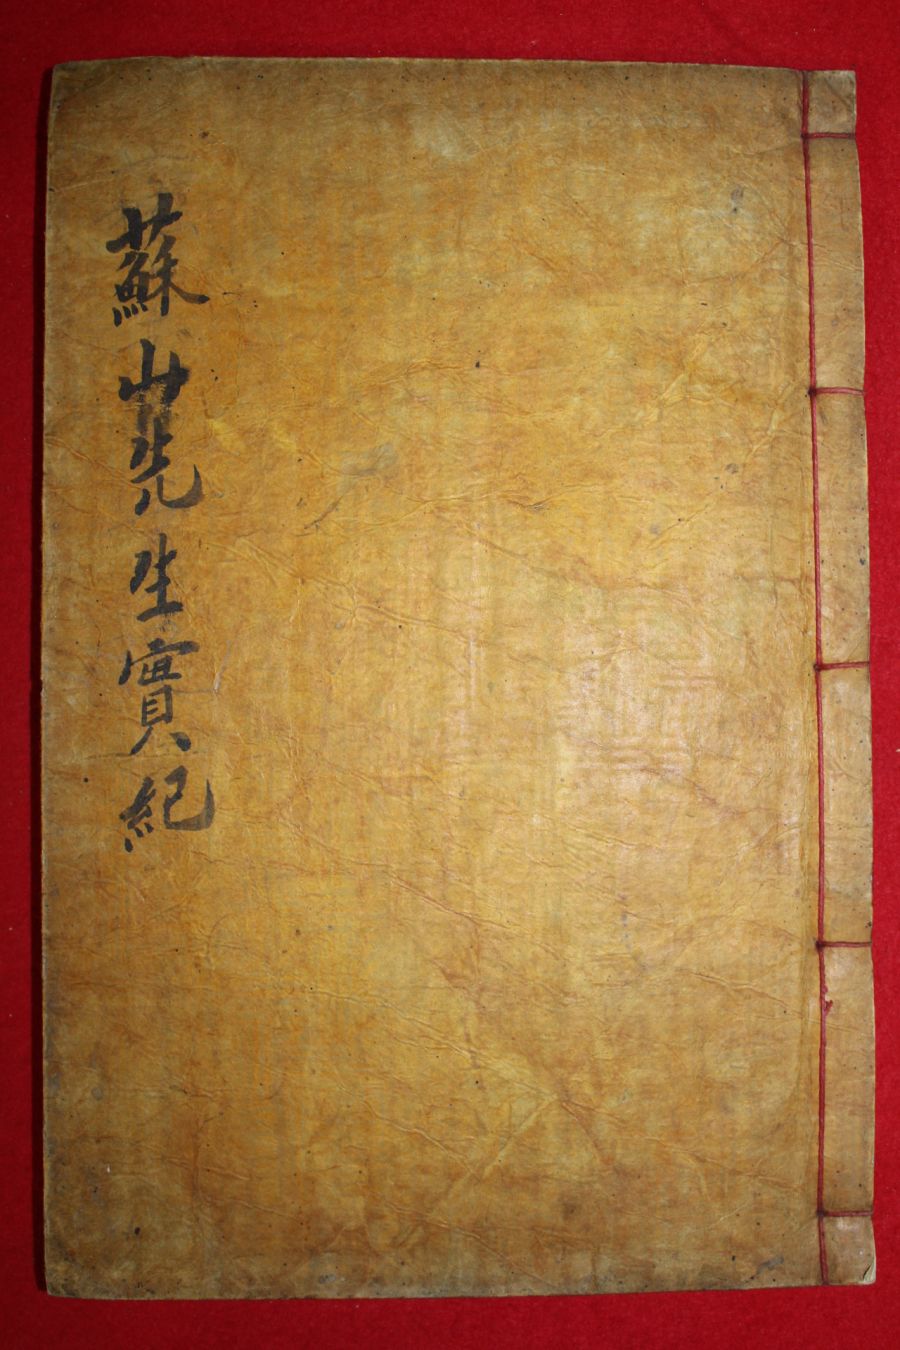 蘇山先生實紀